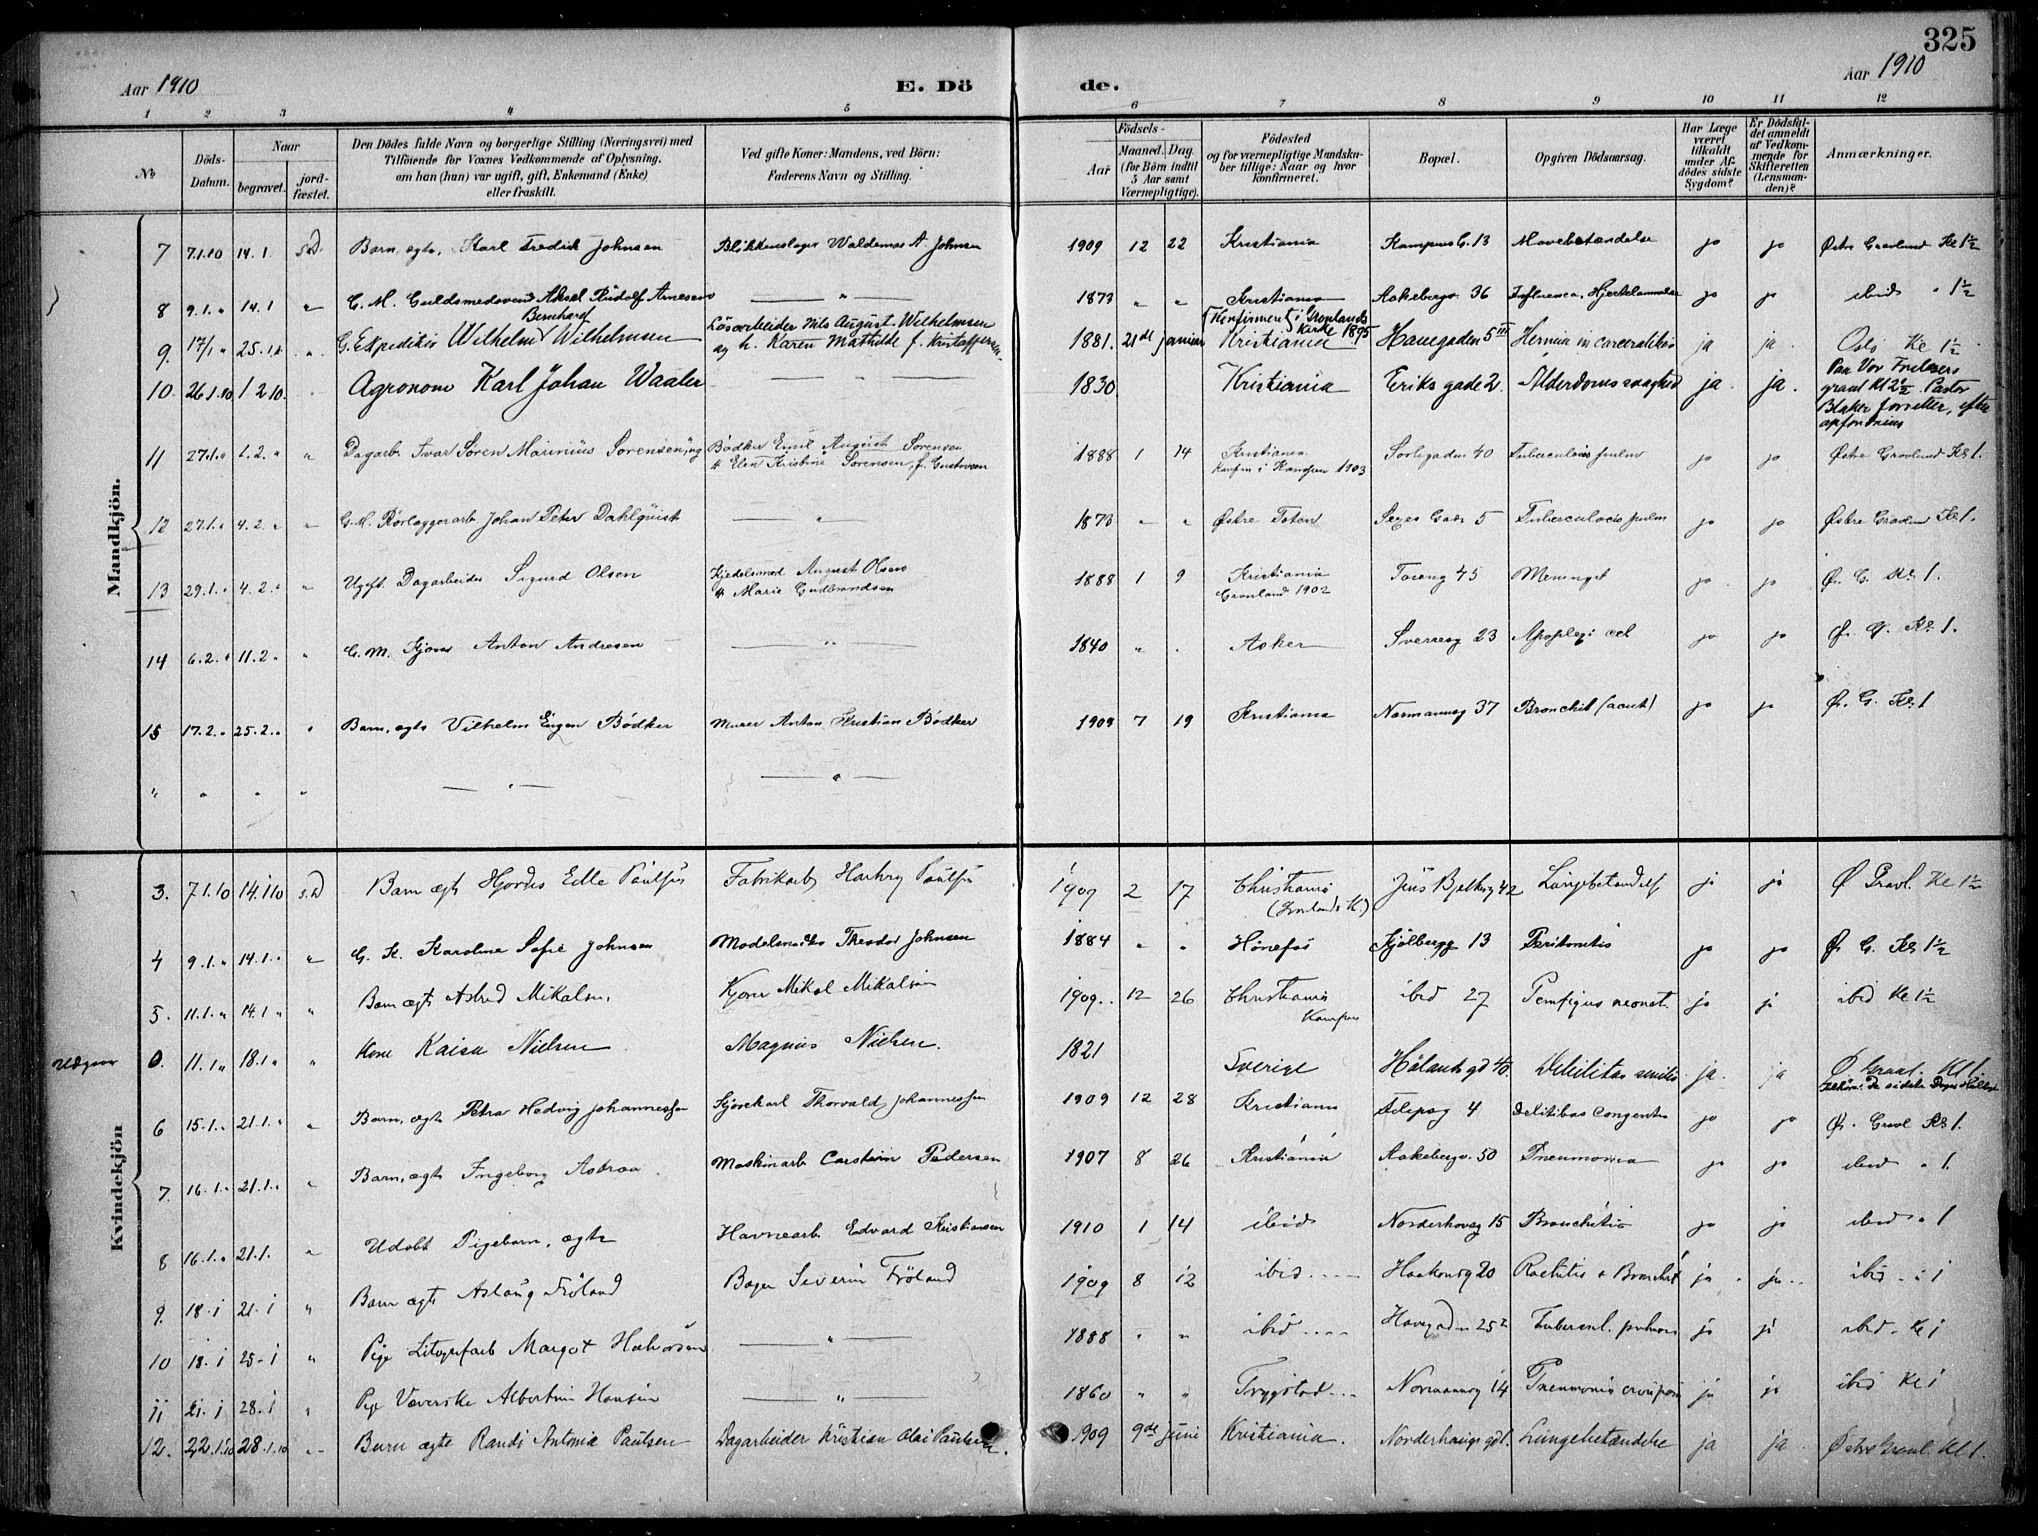 325
Aar 1910
E. Dö
de.
Aar 1910
1 2 3 4 5 6 7 8 9 10 11 12
No
Döds-Datum.
Naar
begravet.
jord-fæstet.
Den Dödes fulde Navn og borgerlige Stilling (Næringsvei) med
Tilföiende for Voxnes Vedkommende af Oplysning,
om han (hun) var ugift, gift, Enkemand (Enke)
eller fraskilt.
Ved gifte Koner: Mandens, ved Börn:
Faderens Navn og Stilling.
Födsels-
Aar
Maaned. Dag.
(for Börn indtil
5 Aar samt
Værnepligtige).
Födested
og for værnepligtige Mandska-
ber tillige: Naar og hvor
konfirmeret.
Bopæl.
Opgiven Dödsaarsag.
Har Læge
været
tilkaldt
under Af-
dödes sidste
Sygdom?
Er Dödsfal-
det anmeldt
af Vedkom-
mende for
Skifteretten
(Lensman-
den)?
Anmærkninger.
Mandkjön.
7 7.1.10 14.1. Barn, ægte, Karl Fredrik Johnsen Blikkenslager Waldemar A. Johnsen 1909 12 22 Kristiania Kampens G. 13 Mavebetændelse jo jo Østre Gravlund Kl 1½
8 9.1. " 14.1 " G. M. Guldsmedsvend Aksel Rudolf Arnesen — " — 1873 " " Kristiania Aakebergv. 36 Influenca, Hjertelammelse jo jo ibid " 1½
9. 17/1 " 25.1 " G. Expeditør Wilhelm Bernhard Wilhelmsen Løsarbeider Nils August Wilhelmsen
og h. Karen Mathilde f. Kristoffersen. 1881. 21de januar Kristiania (Konfirmeret i Grønlands Kirke 1895) Havegaden 5 III Hernia ja ja. Oslo Kl 1½
10. 26.1.10 1 2 10. Agronom Karl Johan Waaler — " — 1830. Kristiania Eriks gade 2. Alderdomssvaghed ja. ja. Paa Vor Frelsers
gravl Kl 2½. Pastor
Blaker forretter, efter
opfordring
11 27.1. " 1.2. " " Dagarb. Ivar Søren Marinius Sørensen, ug Bødker Emil August Sørensen
& Elen Kristine Sørensen, f. Gustavsen 1888 1 14 Kristiania
Konfm i Kampen 1903 Sørligaden 40 Tuberculosis pulm jo jo Østre Gravlund Kl 1.
12 27.1. " 4.2. " " G. M. Rørlæggerarb Johan Peter Dahlquist — " — 1873 " " Østre Toten Sexes Gade 5 Tuberculosis pulm jo jo Østre Gravlund Kl 1.
13 29.1. " 4.2. " " Ugift. Dagarbeider Sigurd Olsen Kjedelsmed August Olsen
& Marie Gudbrandsen 1888 1 9 Kristiania
Grønland 1902 Tøieng 45 Meninget jo jo Ø. G. Kl 1.
14 6.2. " 11.2. " " G. M. Kjører Anton Andresen — " — 1840 " . Asker Sverresg 23 Apoplexi cel jo jo Ø. G. Kl 1.
15 17.2. " 25.2. " " Barn, ægte Vilhelm Eugen Bødker Murer Anton Kristian Bødker 1909 7 19 Kristiania Normannsg 37 Bronchit (acut) jo jo Ø. G. Kl 1
" " " " — " — — " —
Kvindekjön
3. 7.1.10 14.1.10 Barn ægte Hjørdis Elle Paulsen Fabrikarb Harhry Paulsen 1909 2 17 Christiania
(Grønlands K.) Jens Bjelkesg 42 Lungebetændelse jo jo Ø Gravl. Kl 1½
4 9.1. " 14.1. " " G. K. Karoline Sofie Johnsen Modelsnedker Theodor Johnsen 1884 " " Hønefos Kjølbergg 13 Peritonitis jo jo Ø. G. Kl 1½
5. 11.1. " 14.1 " " Barn ægte Astrid Mikalsen. Kjører Mikal Mikalsen 1909. 12 26 Christiania
Kampen ibid 27 Pemfigus neonat jo jo ibid Kl 1½
Udgaar 0. 11.1. " 18.1 " " Kone Kaisa Nielsen Magnus Nielsen. 1821 Sverige Hølands gd 40. Debilitas senilis ja. ja Ø Gravl. Kl 1.
6 15.1. " 21.1. " " Barn, ægte Petra Hedvig Johannessen Kjørekarl Thorvald Johannessen 1909 12 28 Kristiania 4 jo jo Ø. Gravl Kl 1.
7. 16.1. " 21.1. " " Barn, ægte Ingeborg Astrea. Maskinarb Carstein Pedersen 1907 8 26 Kristiania Aakebergv. 50 Pneumonia jo jo ibid " 1.
8 16.1. " 21.1. " Udøbt Pigebarn, ægte Havnearb Edvard Kristiansen 1910 1 14 ibid Norderhovsg 15 Bronchitis jo jo ibid " 1
9. 18.1 21.1 " Barn ægte Aslaug Frøland Bager Severin Frøland 1909 8 12 ibid Haakonsg 20 Rachitis & Bronchit jo jo ibid " 1
10 18.1 25.1 " Pige Litografarb Margot Halvorsen — " — 1888 " " ibid Havegaden 25² Tubercul. pulmon jo jo ibid Kl 1
11 21.1 28.1 " Pige Væverske Albertine Hansen — " — 1860 " " Trygstad Normannsg 14 Pneumonia croupøs jo jo ibid Kl 1
12. 22.1.10 28.1.10 " Barn ægte Randi Antonia Paulsen Dagarbeider Kristian Olai Paulsen. 1909 9de juni Kristiania. Norderhaugs gd 1. Lungebetændelse ja ja Østre Gravl. Kl 1.